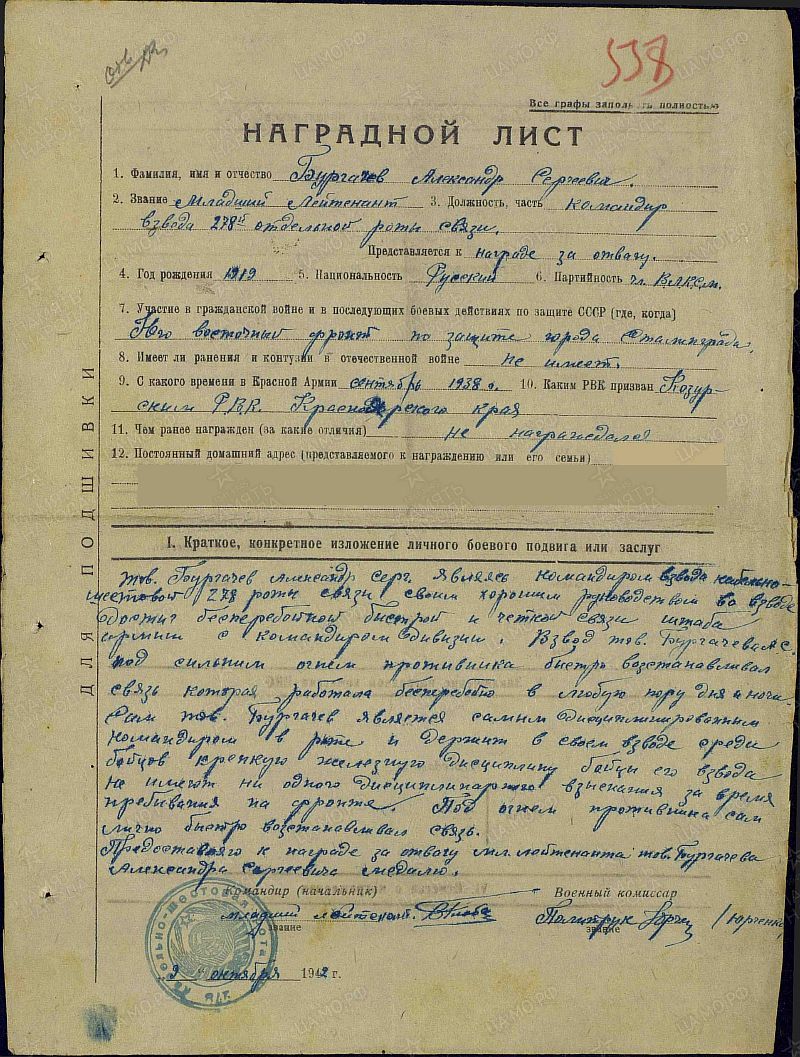 538
Все графы заполнять полностью
НАГРАДНОЙ ЛИСТ
1. Фамилия, имя и отчество Бургачев Александр Сергеевич.
2. Звание Младший Лейтенант 3. Должность, часть командир
взвода 278й отдельной роты связи.
Представляется к награде за отвагу.
4. Год рождения 1919 5. Национальность Русский 6. Партийность чл. ВЛКСМ.
7. Участие в гражданской войне и в последующих боевых действиях по защите СССР (где, когда)
Юго восточный фронт по защите города Сталинграда.
8. Имеет ли ранения и контузии в отечественной войне не имеет.
9. С какого времени в Красной Армии сентябрь 1938 г. 10. Каким РВК призван Козур-
ским РВК Красноярского края
11. Чем ранее награжден (за какие отличия) не награждался
12. Постоянный домашний адрес (представляемого к награждению или его семьи)
ДЛЯ ПОДШИВКИ
I. Краткое, конкретное изложение личного боевого подвига или заслуг
тов. Бургачев Александр Серг. являясь командиром взвода кабельно-
шестовой 278 роты связи своим хорошим руководством во взводе
достиг бесперебойной быстрой и четкой связи штаба
армии с командиром дивизии. Взвод тов. Бургачева А.С.
под сильным огнем противника быстро возстанавливал
связь которая работала бесперебойно в любую пору дня и ночи.
Сам тов. Бургачев является самым дисциплинированным
командиром в роте и держит в своем взводе среди
бойцов крепкую железную дисциплину бойцы его взвода
не имеют ни одного дисциплинарного взыскания за время
пребывания на фронте. Под огнем противника сам
лично быстро возстанавливал связь.
Предоставляю к награде за отвагу мл. лейтенанта тов. Бургачева
Александра Сергеевича медалью.
Командир (начальник) Военный комиссар
младший лейтенант Политрук /Юрченко/
звание звание
9 октября 1942 г.